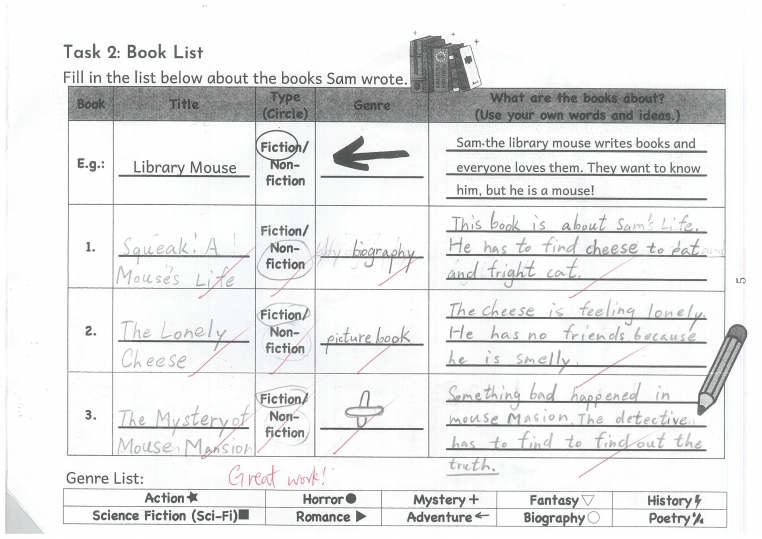 Task 2: Book List
Fill in the list below about the books Sam wrote.
Book Title Type (Circle) Genre What are the books about? (Use your own words and ideas.)
E.g.: Library Mouse Fiction/ Non-fiction
Sam the library mouse writes books and
everyone loves them. They want to know
him, but he is a mouse!
1. Squeak! A
Mouse's Life
Fiction/ Non-fiction
biography
This book is about Sam's Life.
He has to find cheese to eat
and fright cat.
2. The Lonely
Cheese
Fiction/ Non-fiction
picture book
The cheese is feeling lonely.
He has no friends because
he is smelly.
3. The Mystery of
Mouse Mansion
Fiction/ Non-fiction
Something bad happened in
mouse Masion. The detective
has to find to find out the
truth.
5
Great work!
Genre List:
Action Horror Mystery Fantasy History
Science Fiction (Sci-Fi) Romance Adventure Biography Poetry